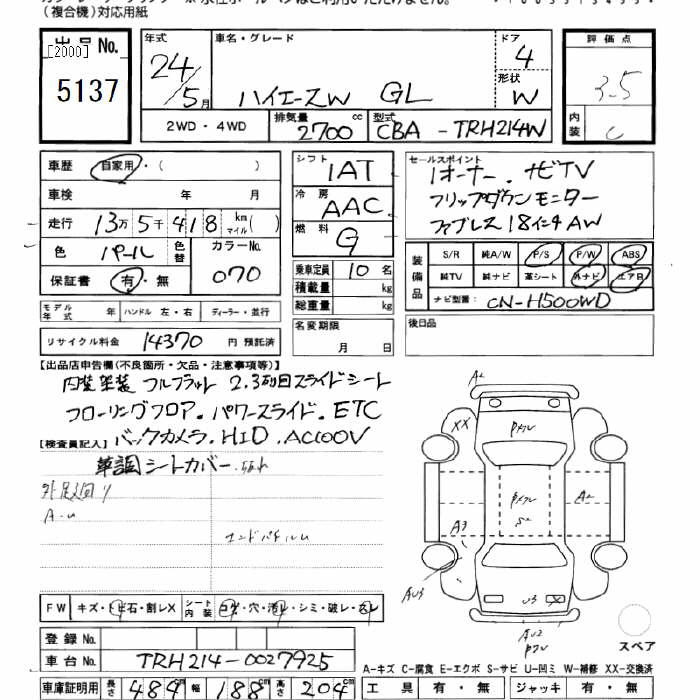 (複合機)対応用紙
出品 No.
[2000]
5137
年式
24/5月
車名・グレード
ハイエースW GL
ドア
4
形状
W
評価点
3.5
内装
C
2WD・4WD
排気量
2700 cc
型式
CBA - TRH214W
車歴 自家用・( )
車検 年 月
走行 13万5千418 km マイル( )
色 パール 色替 カラーNo. 070
保証書 有・無
シフト IAT
冷房 AAC
燃料 G
乗車定員 10 名
積載量 kg
総重量 kg
セールスポイント
1オーナー.ナビTV
フリップダウンモニター
ファブレス18インチAW
装備品
S/R 純A/W P/S P/W ABS
純TV 純ナビ 革シート 外ナビ エアB
ナビ型番: CN-H500WD
モデル年式 年 ハンドル 左・右 ディーラー・並行
リサイクル料金 14370 円 預託済
名変期限
月 日
後日品
【出品店申告欄(不良箇所・欠品・注意事項等)】
内装架装 フルフラット 2.3列目スライドシート
フローリングフロア.パワースライド.ETC
【検査員記入】バックカメラ.HID.AC100V
革調シートカバー
外足廻り
A-U
A2
XX
A2
A3
AU3
U3
X
AU2
スペア
FW キズ・トビ石・割レX シート内装 コゲ・穴・汚レ・シミ・破レ・スレ
登録 No.
車台 No. TRH214-0027925
A-キズ C-腐食 E-エクボ S-サビ U-凹ミ W-補修 XX-交換済
車庫証明用 長さ 484 cm 幅 188 cm 高さ 204 cm
工具 有・無 ジャッキ 有・無